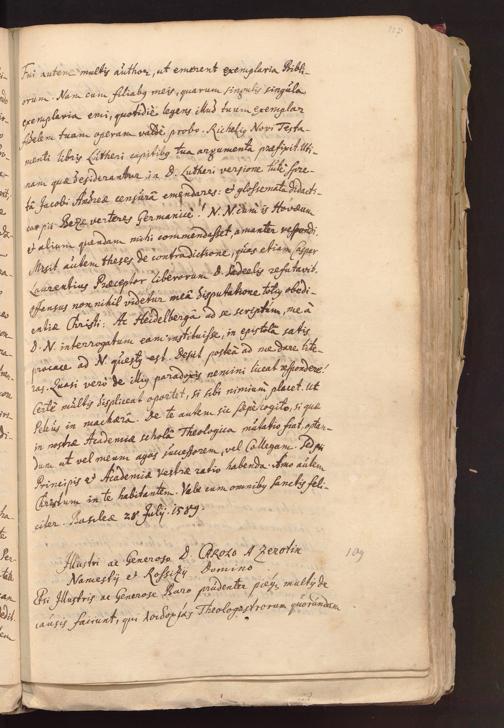 Fui autem multis author, ut emerent exemplaria Bibli-
orum. Nam cum filiabus meis, quarum singulis singula
exemplaria emi, quotidie legens illud tuum exemplar
fidelem tuam operam valdè probo. Richelius Novi Testa-
menti libris Lutheri capitibus tua argumenta præfixit. Uti-
nam quæ desiderantur in D. Lutheri versione
Jacobi Andreæ censurâ emendares: et glossemata
Bezæ verteres Germanicè. N. N. cum is
et alium quendam mihi commendasset, amanter respondi.
Misit autem theses de contradictione, quas etiam Casper
Laurentius Præceptor liberorum D. Sadeelis refutavit.
offensus non nihil videtur meâ disputatione totius obedi-
entiæ Christi. Ac Heidelbergâ ad se scriptum, me à
D. N. interrogatum eam instituisse, in epistolâ satis
procace ad N questus est. Desiit posteà ad me dare lite-
ras. Quasi verò de illius paradoxis nemini liceat respondere!
Certè multis displiceat oportet, si sibi nimium placet. Ut
in machærâ. De te autem sic sæpè cogito, si quæ
in nostræ Academiæ scholâ Theologicâ mutatio fiat, optan-
dum ut vel meum agas successorem, vel Collegam. Sed
Principis et Academiæ vestræ ratio habenda. Amo autem
Christum in te habitantem. Vale cum omnibus sanctis feli-
citer. Basileæ 28 Julij. 1589.
Illustri ac Generoso D. CAROLO A Zerotin 109
Namestij et Rossizij Domino
Illustris ac Generose Baro prudenter pieque multis de
causis faciunt, qui λοιδορίας Theologastrorum quorundam